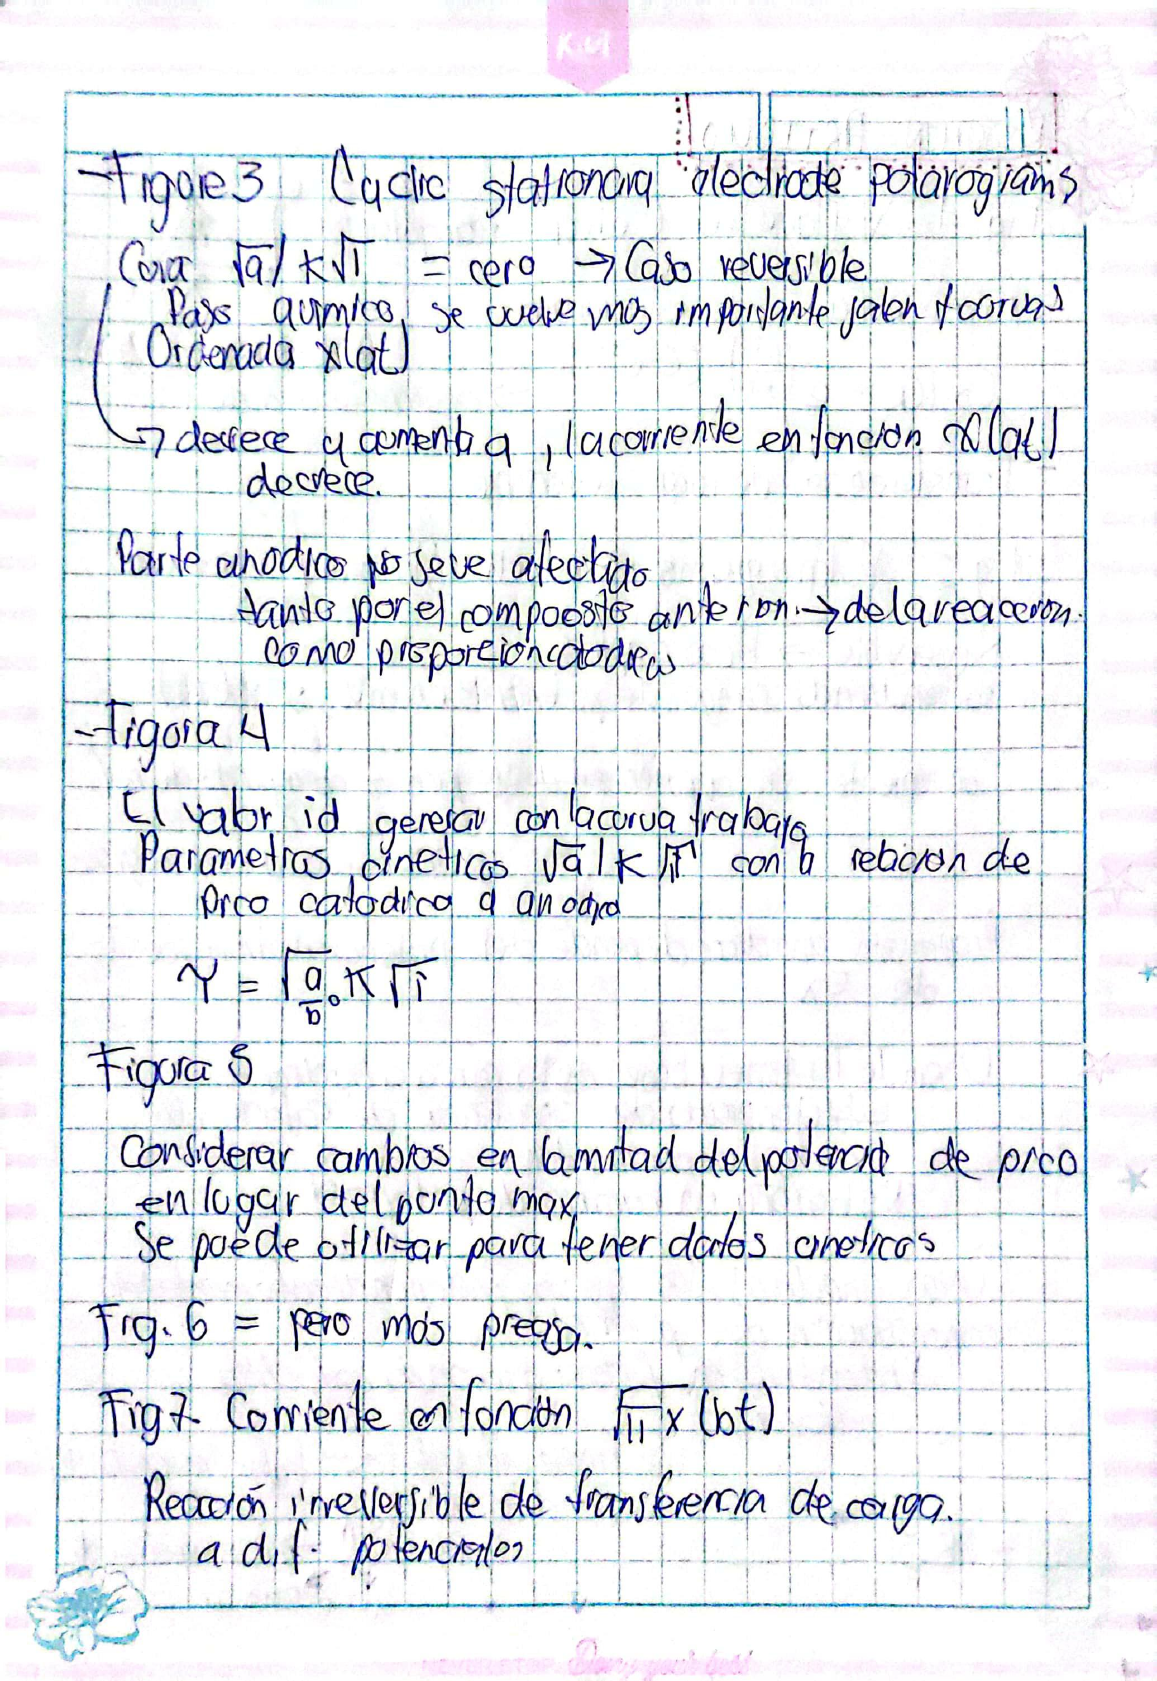 KiM
-Figure 3 Cyclic stationary electrode polarograms
Cuva √a/K√l = cero → Caso reversible
Paso químico, se vuelve mas importante salen + curvas
Ordenada x(at)
→ decrece y aumenta a, la corriente en función X(at)
decrece.
Parte anodica no se ve afectado
tanto por el compuesto anterior. → de la reaccion.
como proporción catodicas
-Figura 4
El valor id generar con la curva trabajo
Parametros cineticos √a/K√l con la relación de
pico catodica a anodica
γ = √a/b · K√l
Figura 5
Considerar cambios en la mitad del potencial de pico
en lugar del punto max.
Se puede utilizar para tener datos cineticos
Fig. 6 = pero mas precisa.
Fig 7. Corriente en función √π x (bt)
Reacción irreversible de transferencia de carga.
a dif. potenciales